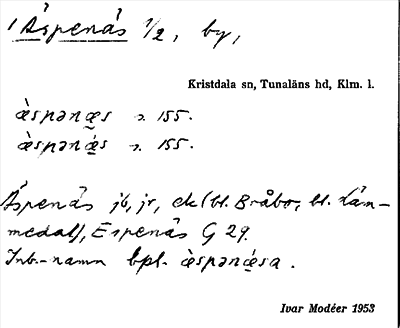 Äspenäs 1/2, by,
Kristdala sn, Tunaläns hd, Klm. l.
æ̀spənæs s. 155.
æ̀spənǽ̣s s. 155.
Äspenäs jb, jr, ek (bl. Bråbo, bl. Lån-
medal), Espenäs G 29.
Inb.-namn bpl. æ̀spənǽ̣sa.
Ivar Modéer 1953